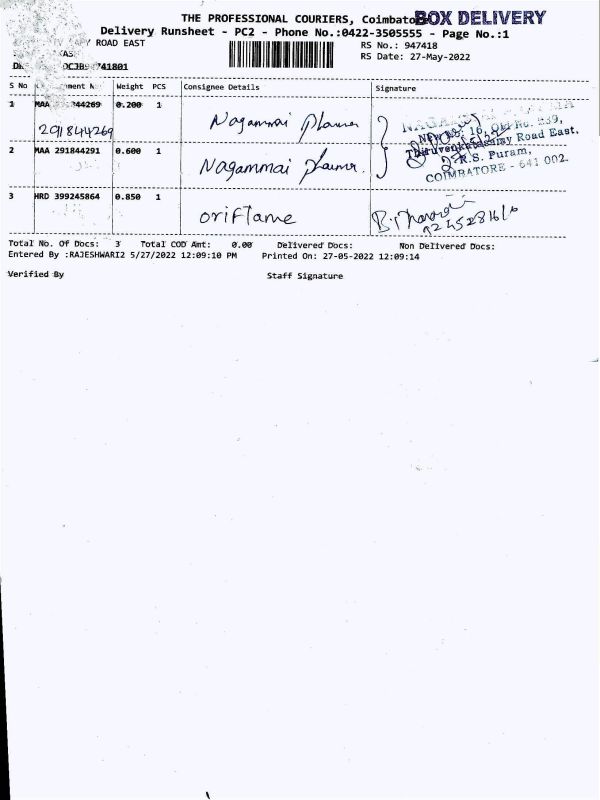 THE PROFESSIONAL COURIERS, Coimbato
BOX DELIVERY
Delivery Runsheet - PC2 - Phone No.:0422-3505555 - Page No.:1
ROAD EAST
RS No.: 947418
RS Date: 27-May-2022
S No Weight PCS Consignee Details Signature
1 MAA 0.200 1 Nagammai
291844269
2 MAA 291844291 0.600 1 Nagammai
New No. 16, Old No. 239,
Thiruvenkatasamy Road East,
R.S. Puram,
COIMBATORE - 641 002.
3 HRD 399245864 0.850 1 oriflame
Total No. Of Docs: 3 Total COD Amt: 0.00 Delivered Docs: Non Delivered Docs:
Entered By :RAJESHWARI2 5/27/2022 12:09:10 PM Printed On: 27-05-2022 12:09:14
Verified By Staff Signature